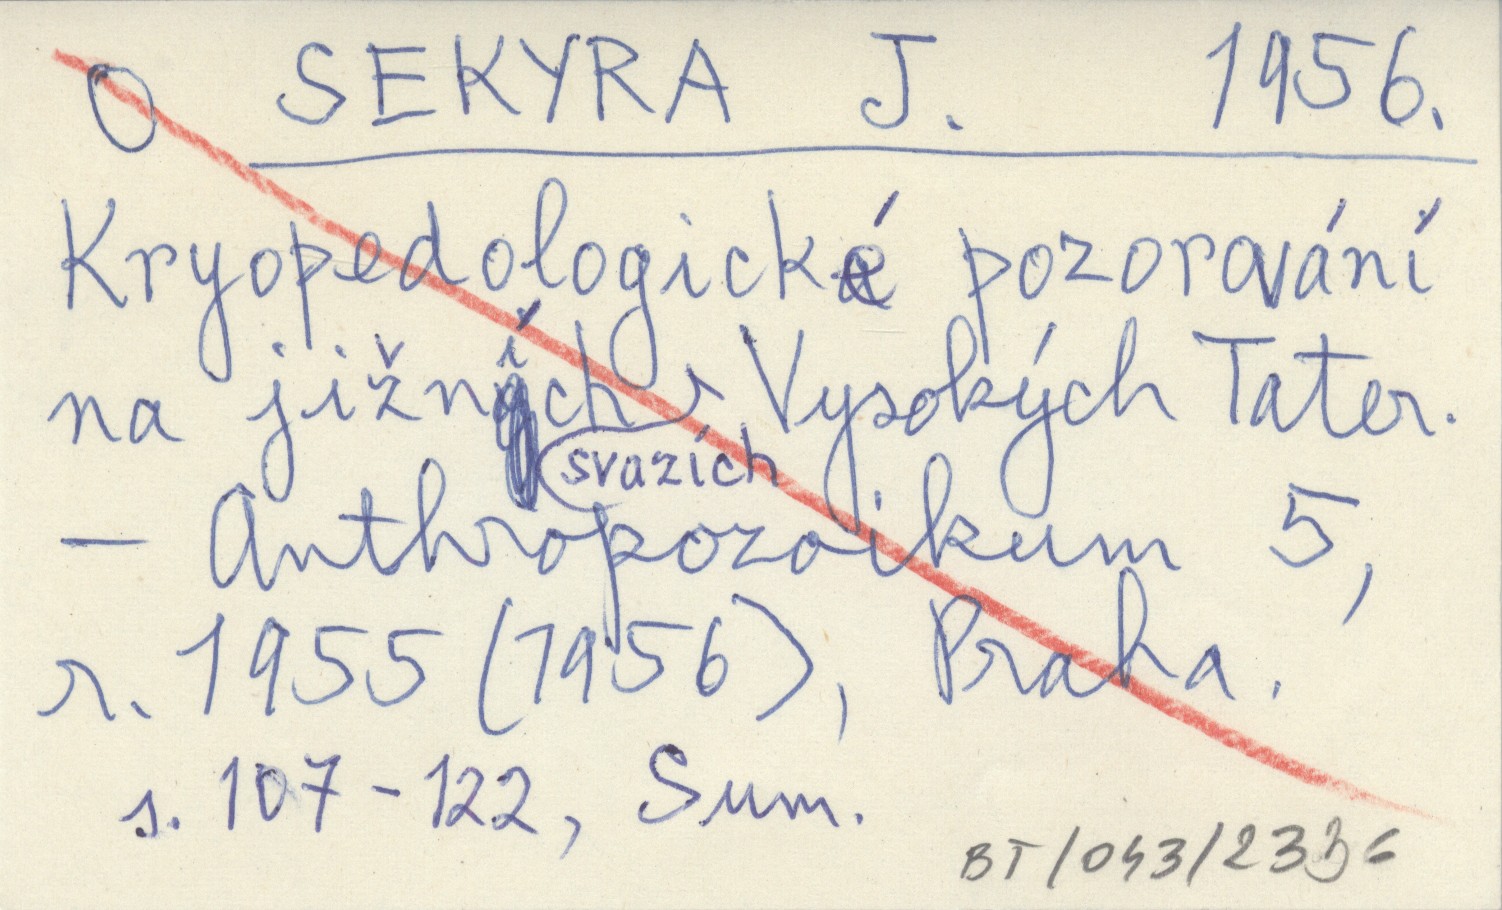 O SEKYRA J. 1956.
Kryopedologické pozorování
na jižních svazích Vysokých Tater.
— Anthropozoikum 5,
r. 1955 (1956), Praha.
s. 107-122, Sum.
BT/043/2336